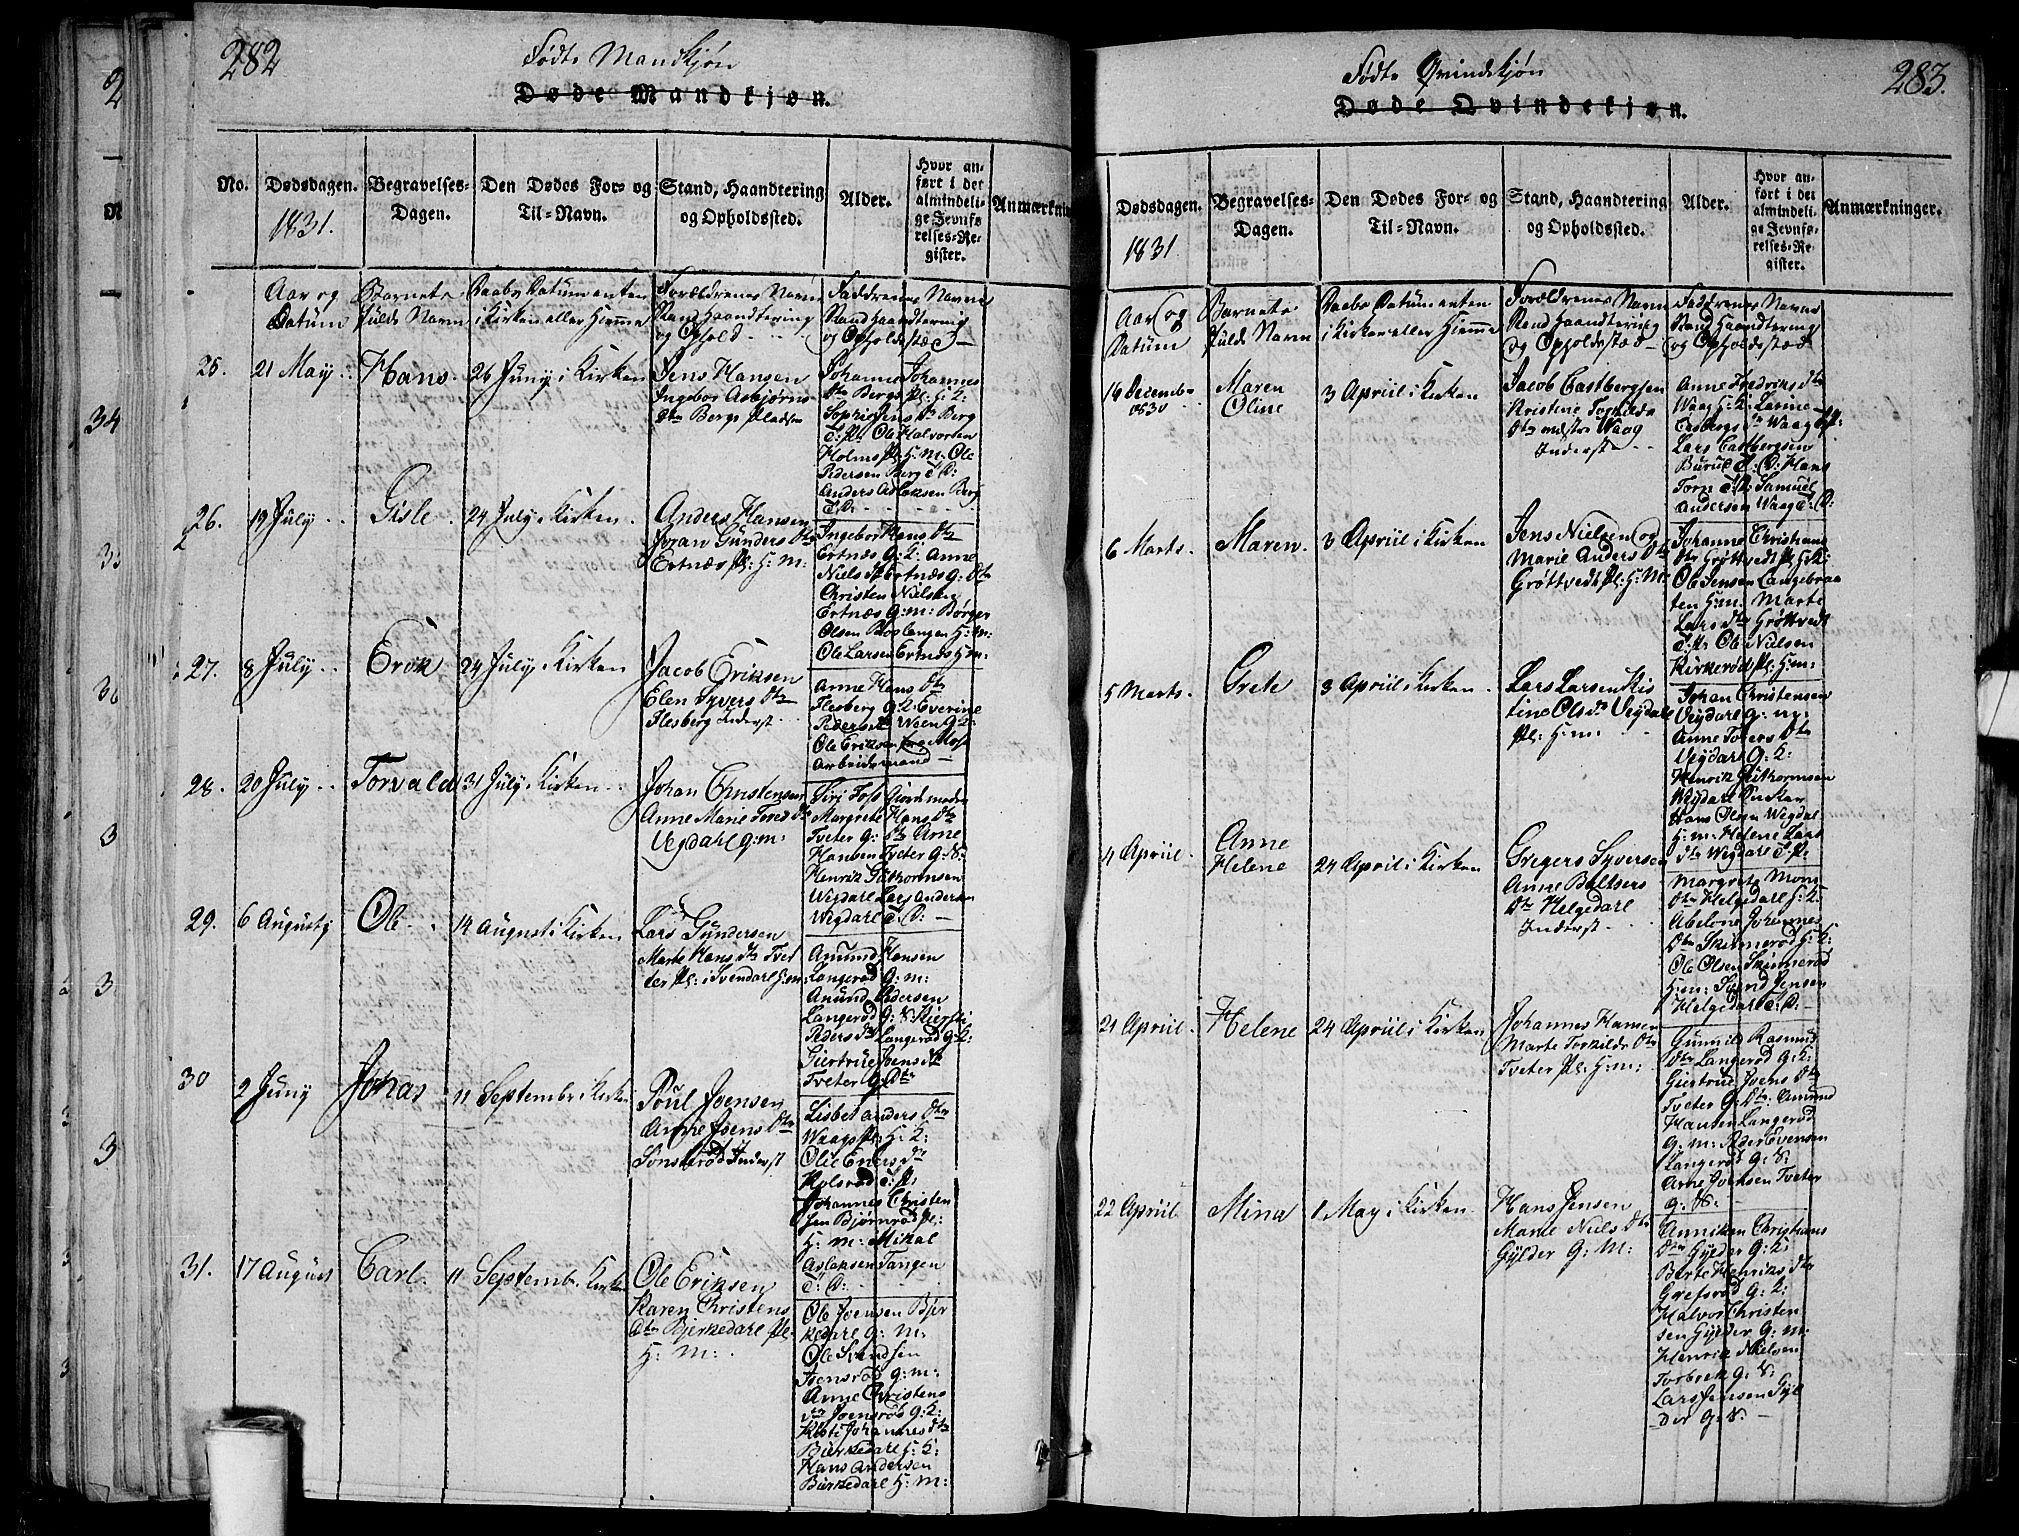 282
Fødte Mandkjøn
Døde Mandkjøn.
No.
Dødsdagen.
1831.
Begravelses-
Dagen.
Den Dødes For- og
Til-Navn.
Stand, Haandtering
og Opholdssted.
Alder.
Hvor an-
ført i det
almindeli-
ge Jevnfø-
relses-Re-
gister.
Anmærknin
Aar og
Datum
Barnets
fulde Navn
Daabs Datum enten
i Kirken eller Hjemme
Forældrenes Navn
Stand Haandtering
og Ophold
Faddrenes Navne
Stand Haandtering
og Opholdsstæd
25.
21 May
Hans.
26 Juny i Kirken
Jens Hansen
Ingebor Asbjørns
Dtr Bergs Pladsen
Johannes Johannes
Dtr Bergs Pl: H: K:
Sophie Jens Dtr Berg
T: P: Ole Halvorsen
Holms Pl: H: M: Ole
Pedersen Berg T: D:
Anders Aslaksen Berg
T: D:
26.
19 July
Gisle
24 July i Kirken
Anders Hansen
Joran Gunders Dtr
Ertnæs Pl: H: M:
Ingebor Hans Dtr
Ertnæs G: K: Anne
Niels Dtr Ertnæs G: Dtr
Christen Nielsen
Ertnæs G: M: Børger
Olsen Boslangen H: M:
Ole Larsen Ertnæs H: M:
27.
8 July
Erik
24 July i Kirken
Jacob Eriksen
Elen Syvers Dtr
Flesberg Inderst
Anne Hans Dtr
Flesberg G: K: Everine
Peders Dtr Ween G: K:
Ole Eriksen fra Moss
Arbeidsmand
28.
20 July
Torvald
31 July i Kirken
Johan Christensen
Anne Marie Tores Dtr
Vegdarl G: M:
Siri Foss Giordmoder
Margrete Hans Dtr
Tveter G: Dtr Arne
Hansen Tveter G: S:
Henrik Guthormsen
Wegdarl Lars Andersen
Wegdarl T: D:
29.
6 Augusty
Ole
14 August i Kirken
Lars Gundersen
Marte Hans Dtr Tvet
ter Pl: i Svendarl H: M:
Amund Hansen
Langerød G: M:
Anund Pedersen
Langerød G: S: Kiersti
Peders Dtr Langerød G: K:
Giertrue Joens Dtr
Tveter G: Dtr
30
2 Juny
Johas
11 Septembr i Kirken
Poul Joensen
Anne Joens Dtr
Sonsterød Inderst
Lisbet Anders Dtr
Waags Pl: H: K:
Olie Eners Dtr
Holsrød T: P:
Johannes Christen
sen Bjørnrød Pl:
H: M: Mikal
Aslaksen Tangen
T: D:
31.
17 August
Carl
11 Septemb. i Kirken
Ole Eriksen
Karen Christens
Dtr Bjerkedarl Pl:
H: M:
Ole Joensen Bjer
kedarl G: M:
Ole Svendsen
Joensrød G: M:
Anne Christens
Dtr Joensrød G: K:
Kisti Johannes Dtr
Bierkedarl H: K:
Hans Andersen
Birkedarl H: M:
283.
Fødte Qvindekjøn
Døde Qvindekjøn.
Dødsdagen.
1831
Begravelses-
Dagen.
Den Dødes For- og
Til-Navn.
Stand, Haandtering
og Opholdssted.
Alder.
Hvor an-
ført i det
almindeli-
ge Jevnfø-
relses-Re-
gister.
Anmærkninger.
Aar og
Datum
Barnets
fulde Navn
Daabs Datum enten
i Kirken eller Hjemme
Forældrenes Navn
Stand Haandtering
og Opholdsstæd
Faddrenes Navne
Stand Haandtering
og Opholdsstæd
16 Decembr
1830
Maren
Oline
3 Apriil i Kirken
Jacob Castbergsen
Kristine Torkilds
Dtr nedstre Waag
Inderste
Anne Fredriks Dtr
Waag H: K: Larine
Casbergs Dtr Waag T: P:
Lars Castbergsen
Burul T: D: Hans
Torn T: P: Samuel
Andersen Waag T: D:
6 Marts.
Maren.
3 Apriil i Kirken
Jens Nielsen og
Marie Anders Dtr
Grøttvedt Pl: H: M:
Johanne Christians
Dtr Grøttvedt Pl: H: K:
Ole Jensen Langebraa
ten H: M: Marte
Lars Dtr Grøttvedt
T: P: Ole Nielsen
Kirkerød Pl: H: M:
5 Marts.
Grete
3 Apriil i Kirken
Lars Larsen Kis
tine Ols Dtr Vegdarl
Pl: H: M:
Johan Christensen
Vegdarl G: M:
Anne Tores Dtr
Vegdarl G: K:
Henrik Guthormsen
Wegdarl Enkar
Hans Olsen Wegdal
H: M: Helene Lars
Dtr Wegdarl T: P:
4 Apriil
Anne
Helene
24 Apriil i Kirken
Gregers Syversen
Anne Boltsers
Dtr Helgedarl
Inderst
Margrete Mons
Dtr Helgedarl H: K:
Abelone Johannes
Dtr Skinnerød H: K:
Ole Olsen Skinnerød
H: M: Svend Jensen
Helgedarl T: D:
21 Apriil
Helene
24 Apriil i Kirken
Johannes Hansen
Marte Torkilds Dtr
Tveter Pl: H: M:
Gunnild Rasmus
Dtr Langerød G: K:
Giertrue Joens Dtr
Tveter G: Dtr: Amund
Hansen Langerød
G: M: Peder Evensen
Langerød G: S:
Arne Joensen Tveter
G: S:
22 Apriil
Mina
1 May i Kirken
Hans Jensen
Marte Niels Dtr
Gylder G: M:
Anniken Christians
Dtr Gylder G: K:
Berte Henriks Dtr
Grefsrød G: K:
Halvor Christen
sen Gylder G: M:
Henrik Nielsen
Torbeek G: S:
Lars Jensen Gyl
der G: S: